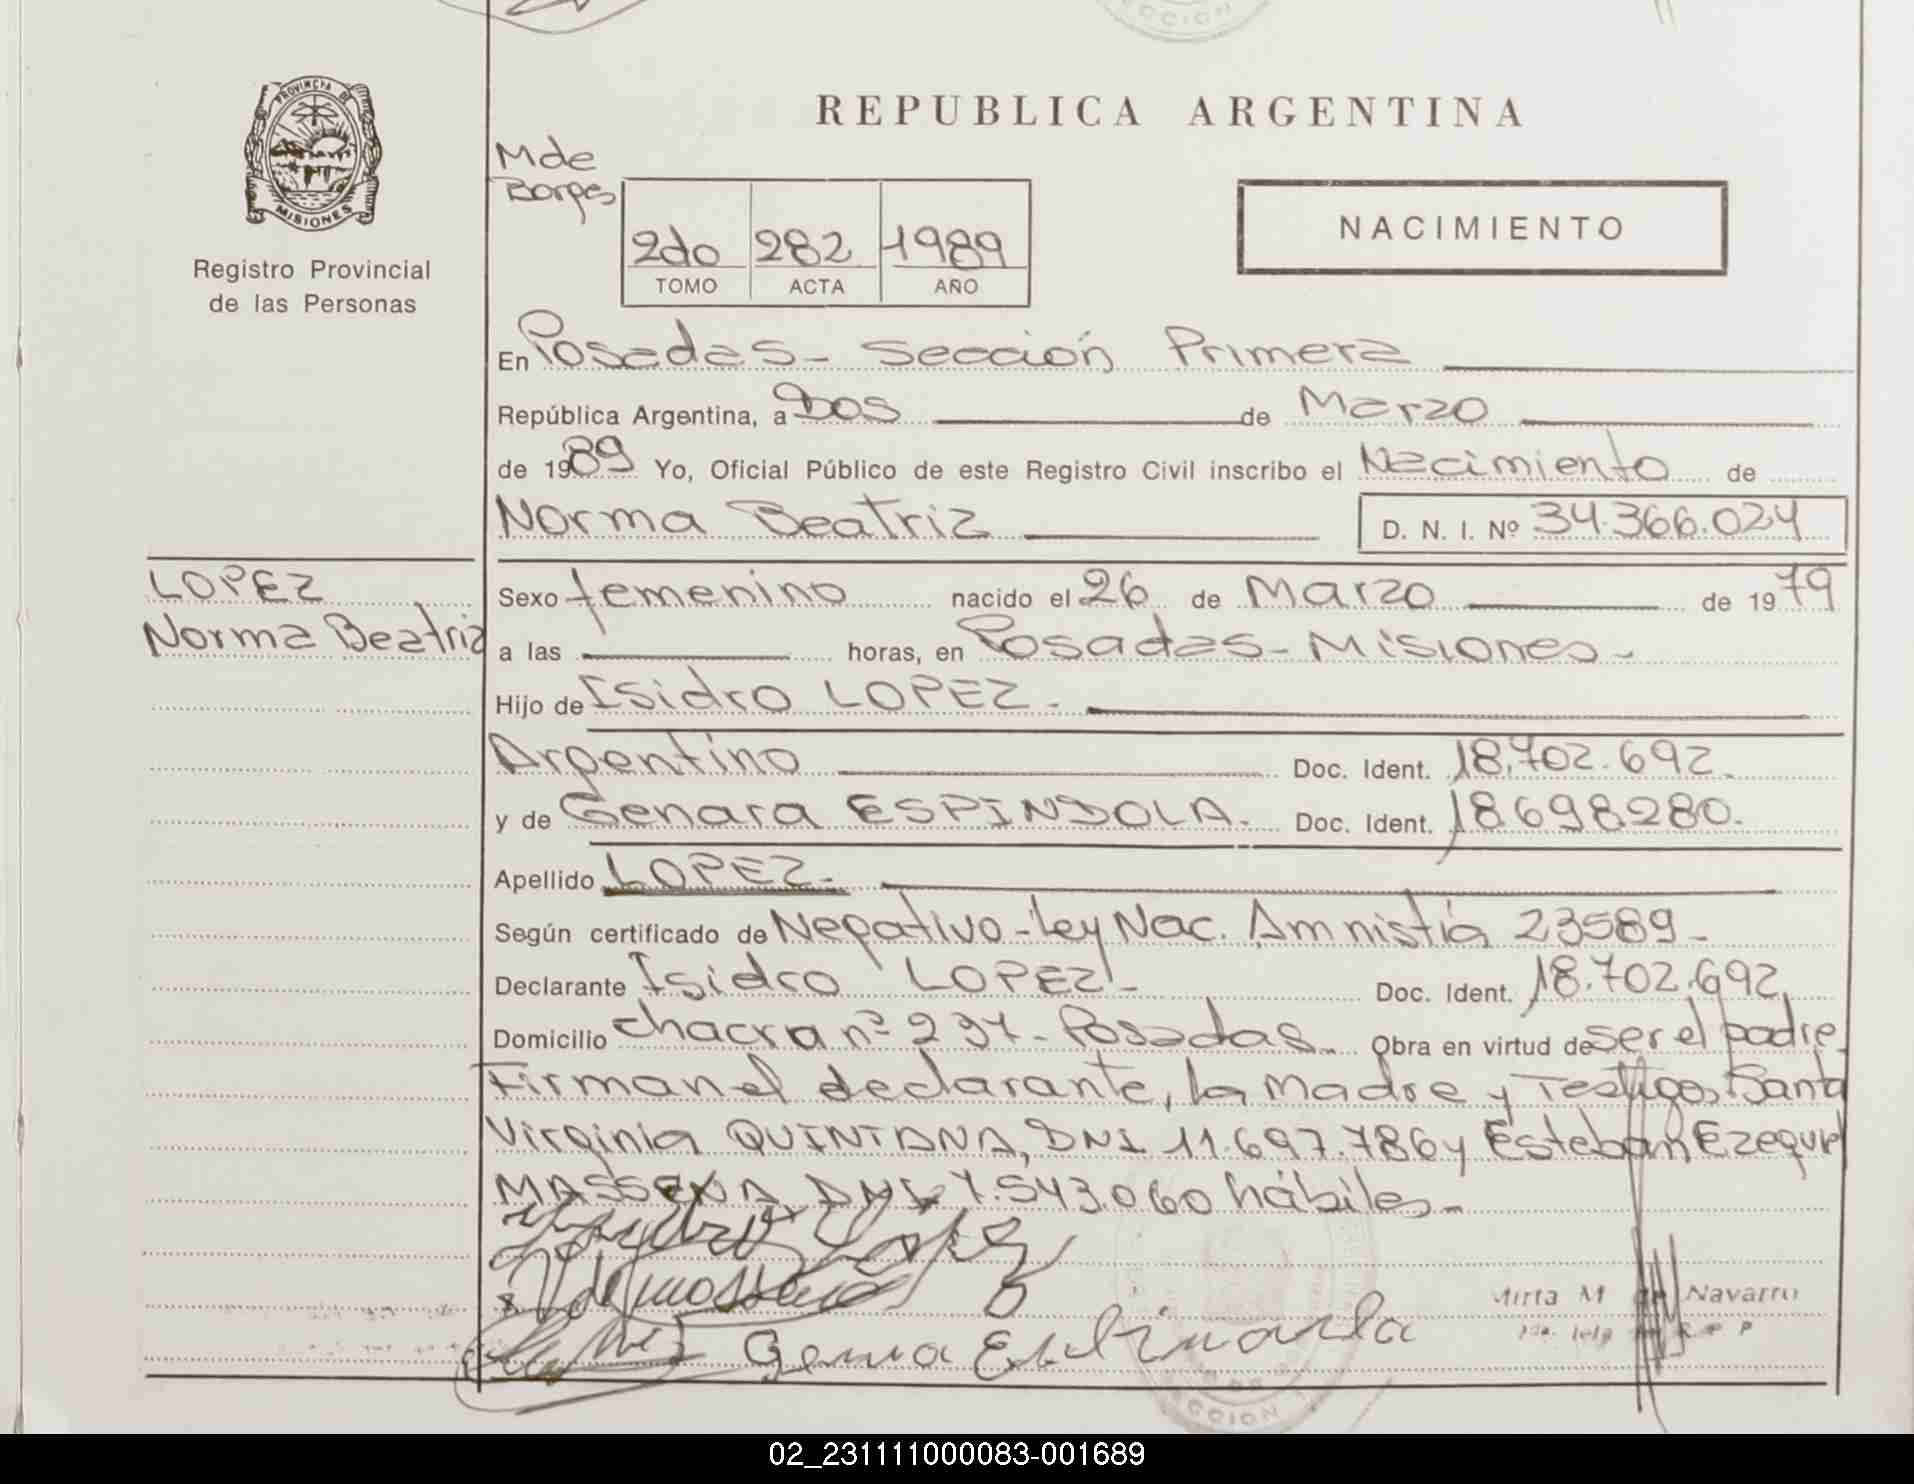 SECCION
PROVINCIA DE
MISIONES
Registro Provincial
de las Personas
REPUBLICA ARGENTINA
M de
Borges
2do 282 1989
TOMO ACTA AÑO
NACIMIENTO
En Posadas - Sección Primera
República Argentina, a Dos de Marzo
de 1989 Yo, Oficial Público de este Registro Civil inscribo el Nacimiento de
Norma Beatriz D. N. I. Nº 34.366.024
LOPEZ
Norma Beatriz
Sexo femenino nacido el 26 de Marzo de 1979
a las horas, en Posadas - Misiones -
Hijo de Isidro LOPEZ.
Argentino Doc. Ident. 18.702.692.
y de Genara ESPINDOLA. Doc. Ident. 18698280.
Apellido LOPEZ.
Según certificado de Negativo - Ley Nac. Amnistía 23589 -
Declarante Isidro LOPEZ - Doc. Ident. 18.702.692
Domicilio chacra nº 237 - Posadas. Obra en virtud de ser el padre.
Firman el declarante, la Madre y Testigos Santa
Virginia QUINTANA, DNI 11.697.786 y Esteban Ezequiel
MASSENA DNI 7.543.060 hábiles -
Mirta M de Navarro
SECCION
02_231111000083-001689